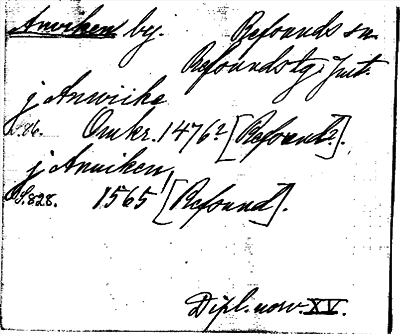 Anviken by. Refsunds sn.
Refsunds tg: Jmt.
j Anwike
S. 86. Omkr. 1476? [Refsund?].
j Anviken,
S. 828. 1565 [Refsund].
Dipl. norv. XV.